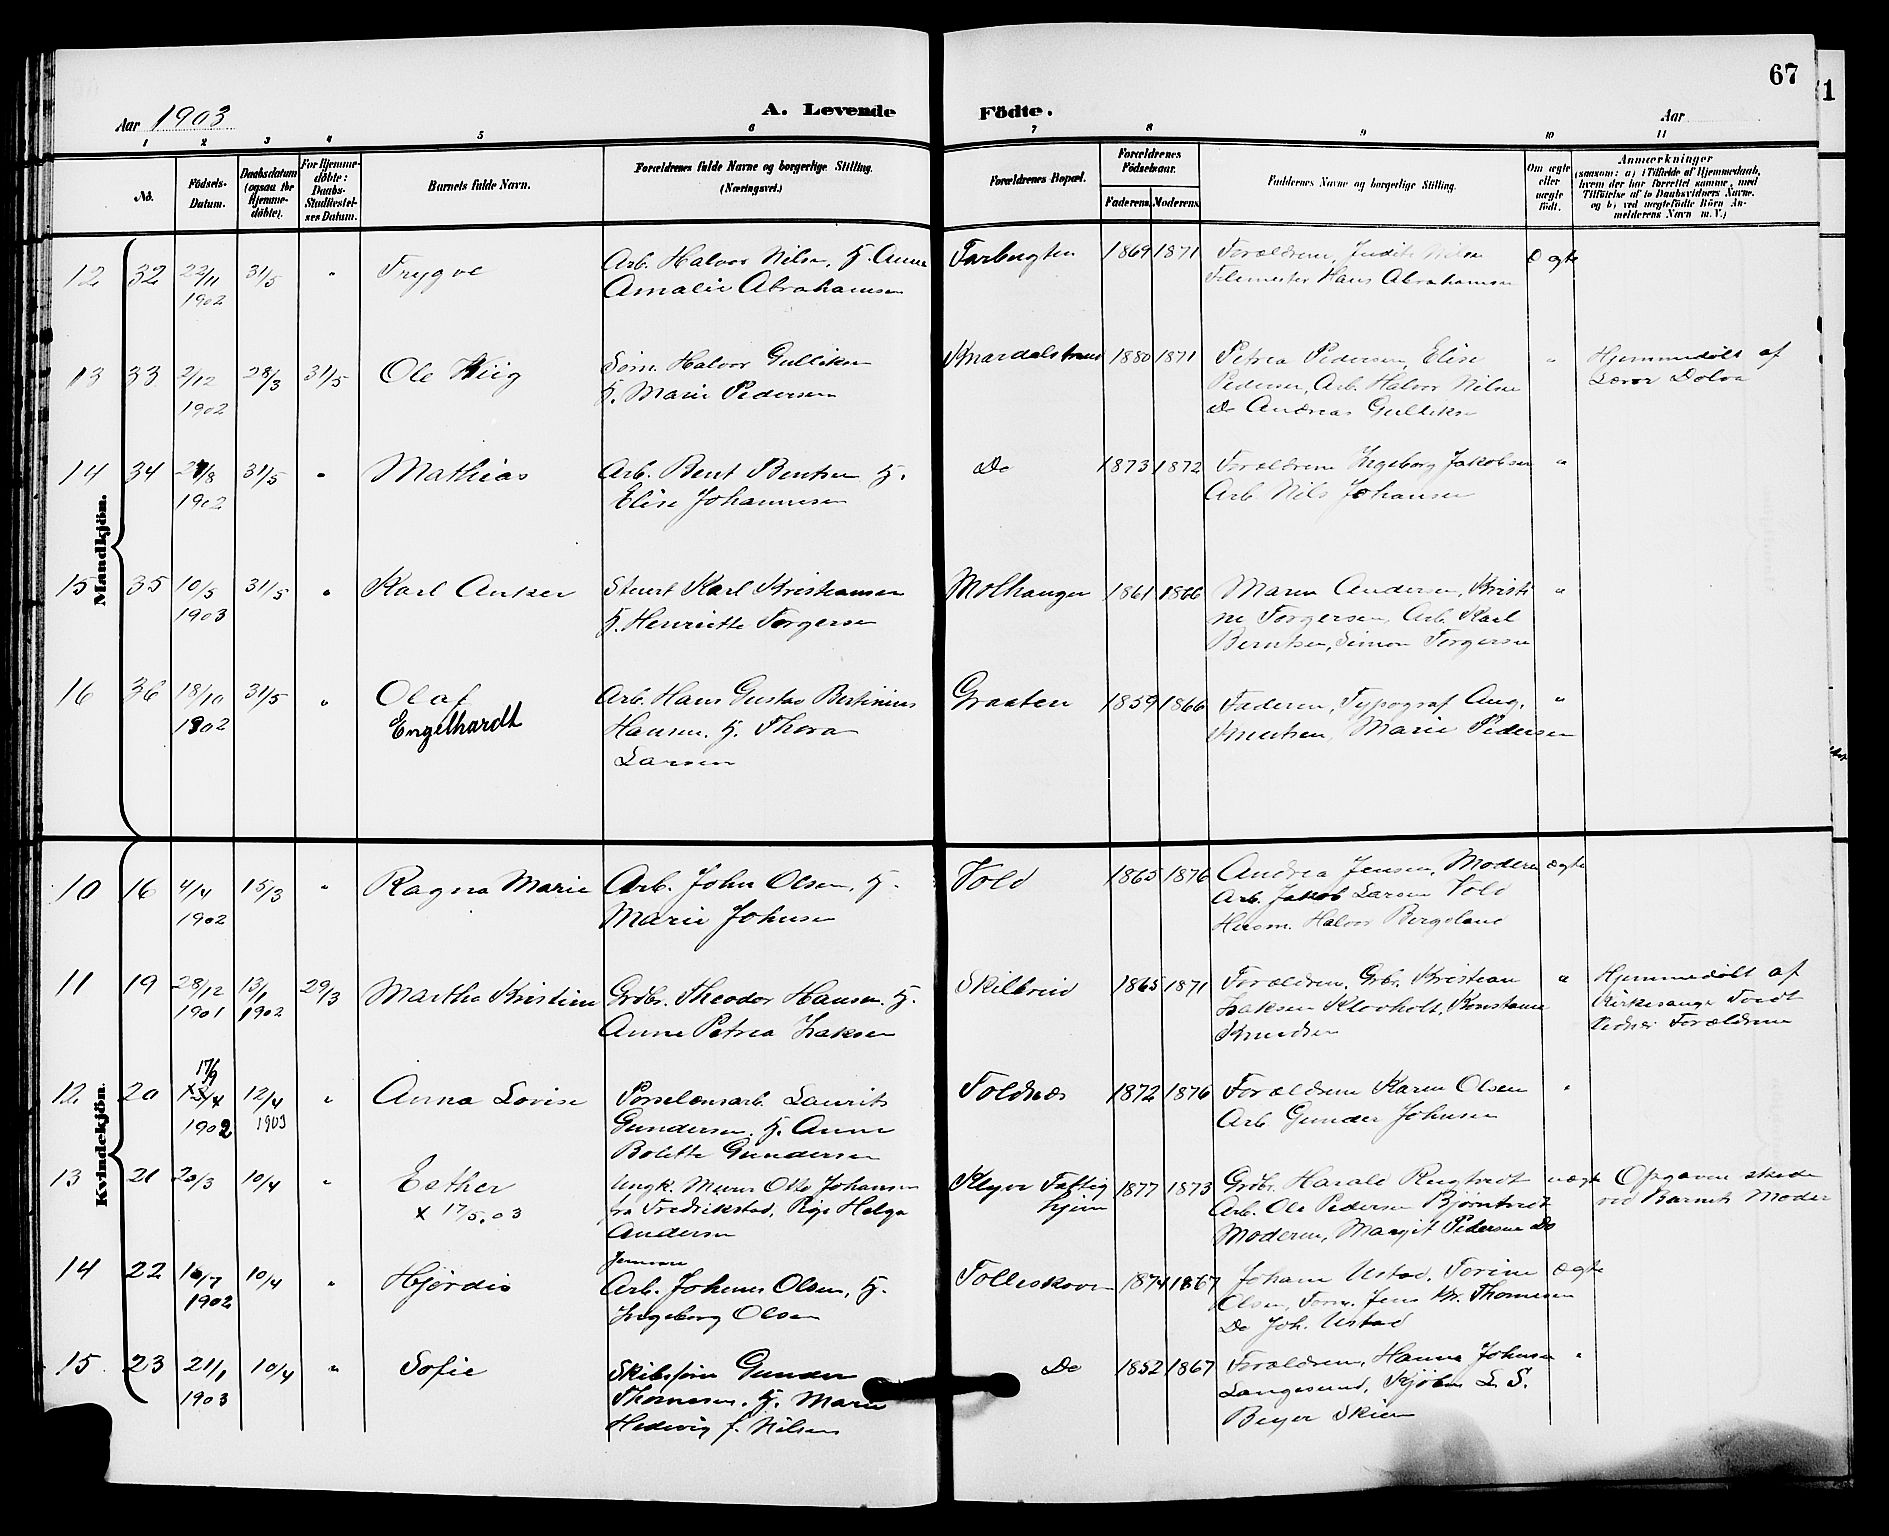 67
1
Aar 1903
A. Levende Födte.
Aar
1 2 3 4 5 6 7 8 9 10 11
No.
Födsels-
Datum.
Daabsdatum
(ogsaa for
Hjemme-
döbte).
For Hjemme-
döbte:
Daabs-
Stadfæstel-
ses Datum.
Barnets fulde Navn.
Forældrenes fulde Navne og borgerlige Stilling.
(Næringsvei.)
Forældrenes Bopæl.
Forældrenes
Födselsaar.
Faderens. Moderens.
Faddernes Navne og borgerlige Stilling.
Om ægte
eller
uægte
födt.
Anmærkninger
(saasom: a) i Tilfælde af Hjemmedaab,
hvem der har forrettet samme, med
Tilföielse af to Daabsvidners Navne.
og b) ved uægtefödte Börn An-
melderens Navn m. V.)
Mandkjön.
12 32 22/11 1902 31/5 " Trygve
Arb. Halvor Nilsen, H. Anne
Amalie Abrahamsen
1869 1871
Forældrene, Judith Nilsen
Hans Abrahamsen
Ægte
13 33 2/12 1902 28/3 31/5 Ole Kiig
Søm. Halvor Gulliksen
H. Marie Pedersen
Knardalstrand 1880 1871
Petrea Pedersen, Elise
Pedersen, Arb. Halvor Nilsen
Do Andreas Gulliksen
"
Hjemmedøbt af
Lærer Dolva
14 34 1902 31/5 " Mathias
Arb. Bent Bentsen H.
Elise Johannesen
Do 1873 1872
Forældrene Ingeborg Jakobsen
Arb. Nils Johansen
"
15 35 10/5 1903 31/5 " Karl Anker
Stuert Karl Kristiansen
H. Henriette Torgersen
Molhaugen 1861 1866
Maren Andersen, Kristi
ne Torgersen, Arb. Karl
Berntsen, Simon Torgersen
"
16 36 18/10 1902 31/5 " Olaf
Engelhardt
Arb. Hans Gustav Bertinius
Hansen, H. Thora
Larsen
Graaten 1859 1866
Faderen, Typograf Aug.
Knutsen, Marie Pedersen
"
Kvindekjön.
10 16 4/4 1902 15/3 " Ragna Marie
Arb. John Olsen, H.
Marie Johnsen
Vold 1865 1876
Andrea Jensen, Moderen
Arb. Jakob Larsen Vold
Husm. Halvor Bergeland
ægte
11 19 28/12 1901 13/1 1902 29/3 Martha Kristine
Grdbr. Theodor Hansen, H.
Anne Petrea Isaksen
Skilbreid 1865 1871
Forældrene, Grbr. Kristian
Isaksen Klovholt, Konstanse
Knudsen
"
Hjemmedøbt af
Kirkesanger Tvedt
Vidner Forældrene
12 20 17/9 1902 12/4 1903 " Anna Lovise
Porselænsarb. Laurits
Gundersen, H. Anne
Bolette Gundersen
Toldnæs 1872 1876
Forældrene Karen Olsen
Arb Gunder Johnsen
"
13 21 20/3 10/4 " Esther
x 17/5.03
Ungk. Murer Otto Johansen
fra Fredrikstad, Pige Helga
Andersen
Klyve Fattig
hjem
1877 1873
Grdbr. Harald Rugtvedt
Arb. Ole Pedersen Bjørntvedt
Moderen, Margit Pedersen Do
uægte
Opgaven skede
ved Barnets Moder
14 22 10/7 1902 10/4 " Hjørdis
Arb. Johannes Olsen, H.
Ingeborg Olsen
Folleskoven 1874 1867
Johane Ustad, Torine
Olsen, Form. Jens Kr. Thomesen
Do Joh. Ustad
ægte
15 23 21/1 1903 10/4 " Sofie
Skibsfører Gunder
Thomesen, H. Marie
Hedevig f. Nilsen
Do 1852 1867
Forældrene, Hanna Johnsen
Langesund, Kjøbm. L. S.
Beyer Skien
"